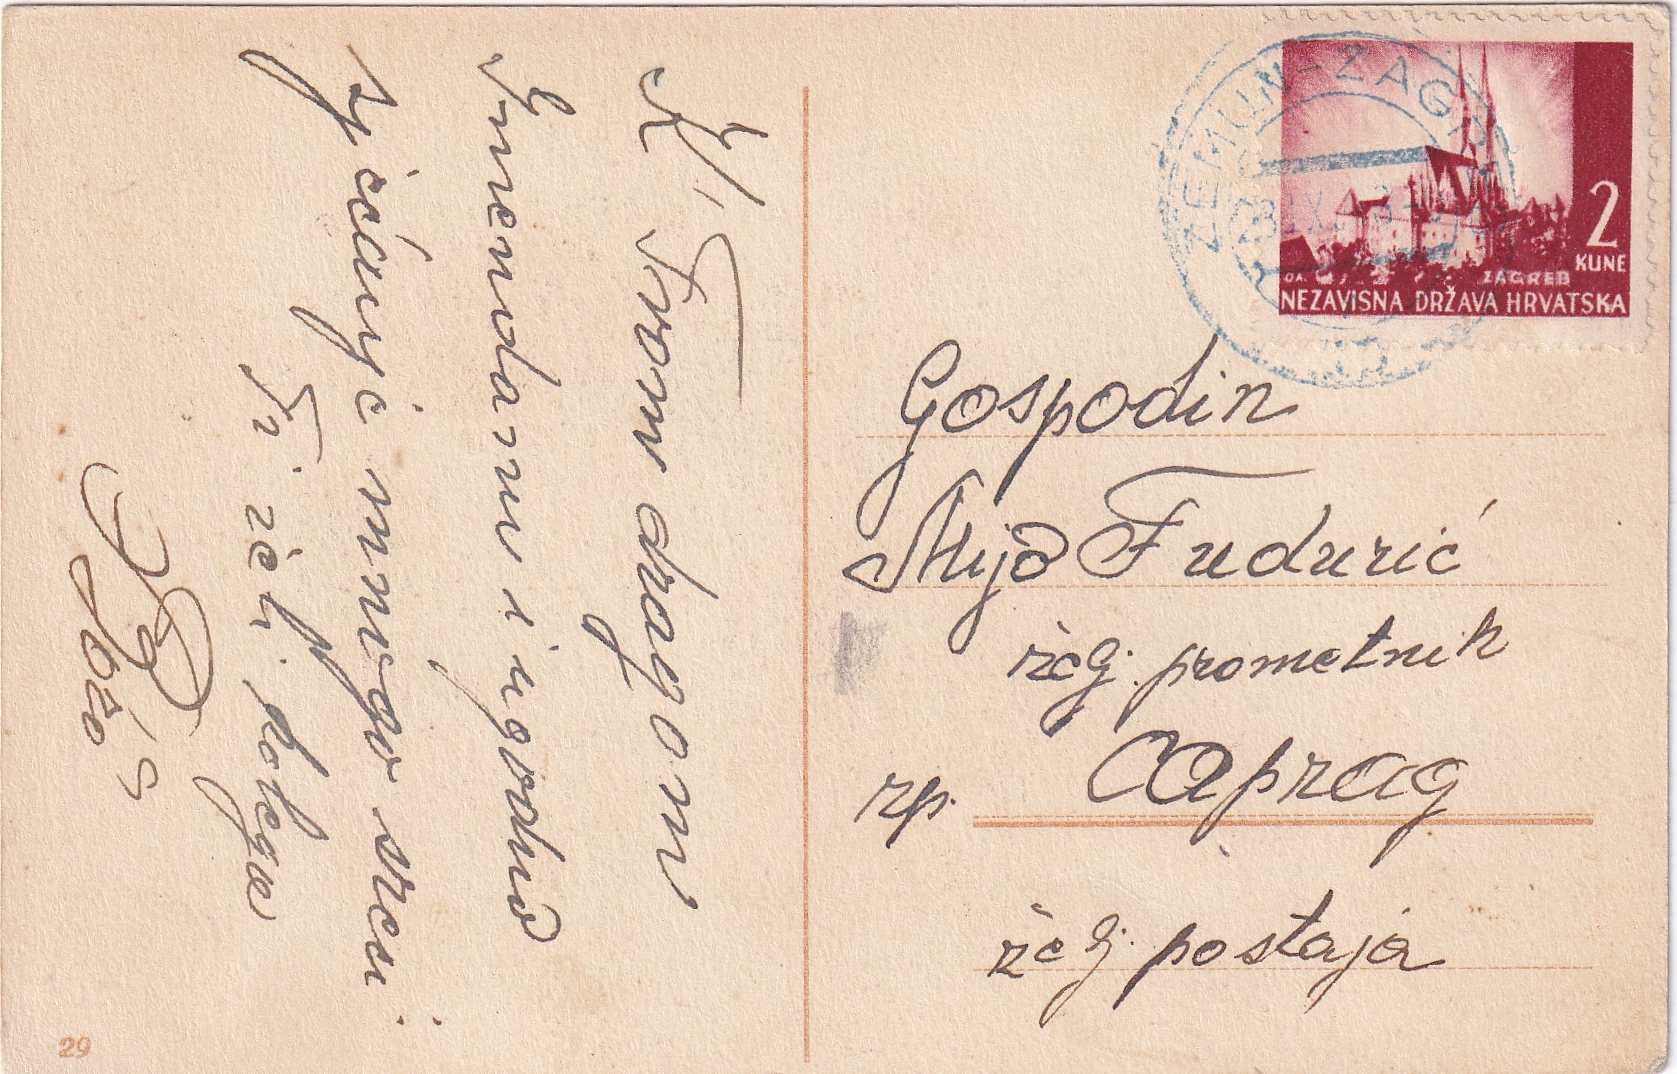 K' Tvom dragom
Imendanu i ugodno
svjećanje mnogo sreći
Ti želi kolega
Božo S
ZEMUN-ZAG
2
KUNE
ZAGREB
NEZAVISNA DRŽAVA HRVATSKA
Gospodin
Mijo Fudurić
želj. prometnik
rp. Caprag
želj. postaja
29